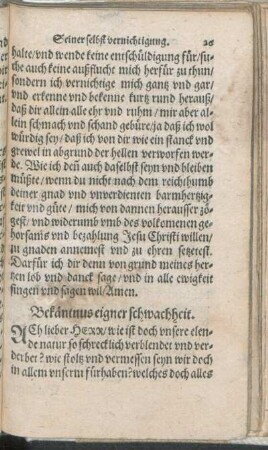 Seiner selbst vernichtigung. 26
halte/vnd wende keine entschüldigung für/su-
che auch keine außflucht mich herfür zu thun/
sondern ich vernichtige mich gantz vnd gar/
vnd erkenne vnd bekenne kurtz rund herauß/
daß dir allein alle ehr vnd ruhm/ mir aber al-
lein schmach vnd schand gebüre/ja daß ich wol
würdig sey/ daß ich von dir wie ein stanck vnd
grewel in abgrund der hellen verworffen wer-
de. Wie ich deñ auch daselbst seyn vnd bleiben
müßte/ wenn du nicht nach dem reichthumb
deiner gnad vnd vnverdienten barmhertzig-
keit vnd güte/ mich von dannen herausser zö-
gest/ vnd widerumb vmb des volkomenen ge-
horsams vnd bezahlung Jesu Christi willen/
zu gnaden annemest vnd zu ehren setzetest.
Darfür ich dir denn von grund meines her-
tzen lob vnd danck sage/vnd in alle ewigkeit
singen vnd sagen wil/Amen.
Bekäntnus eigner schwachheit.
ACh lieber HERR/wie ist doch vnsere elen-
de natur so schrecklich verblendet vnd ver-
derbet? wie stoltz vnd vermessen seyn wir doch
in allem vnserm fürhaben? welches doch alles